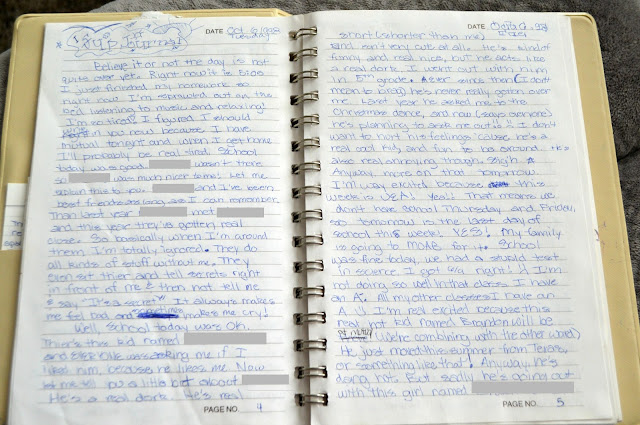 Sup Journal!
DATE Oct 6, 1998
Tuesday
Believe it or not the day is not
quite over yet. Right now it is 5:00
I just finished my homework so
right now I'm sprawled out on the
bed listening to music and relaxing!
I'm so nice! I figured I should
in you now because I have
mutual tonight and when I get home
I'll probably be real tired. School
today was good. wasn't there
so was much nicer to me! Let me
explain this to you. and I've been
best friends as long as I can remember.
Then last year met
and this year they've gotten really
close. So basically when I'm around
them I'm totally ignored. They do
all kinds of stuff without me. They
even set thier and tell secrets right
in front of me & then not tell me
& say "It's a secret". It always makes
me feel bad and makes me cry!
Well, school today was OK.
Thier's this kid named
and everyone was asking me if I
liked him, because he likes me. Now
let me tell you a little bit about
He's a real dork. He's real
PAGE NO. 4
DATE
short (shorter than me)
and isn't very cute at all. He's kind of
funny and real nice, but he acts like
a real dork. I went out with him
in 5th grade. & ever sence then (I don't
mean to brag) he's never really gotten over
me. Last year he asked me to the
Christmas dance, and now (says everyone)
he's planning to ask me out!! I don't
want to hurt his feelings 'cause he's a
real cool kid and fun to be around. He's
also real annoying though. Sigh
Anyway, more on that tomorrow.
I'm way excited because this
week is UEA! Yea! That means we
don't have school Thursday and Friday,
so tomorrow is the last day of
school this week! YES! My family
is going to MOAB for it. School
was fine today, we had a stupid test
in science I got right! I'm
not doing so well in that class I have
an A-. All my other classes I have an
A. I'm real excited because this
real hot kid named Brandon will be
in my (we're combining with the other ward)
He just moved this summer from Texas,
or something like that! Anyway, he's
doing hot. But sadly he's going out
with this girl named
PAGE NO. 5